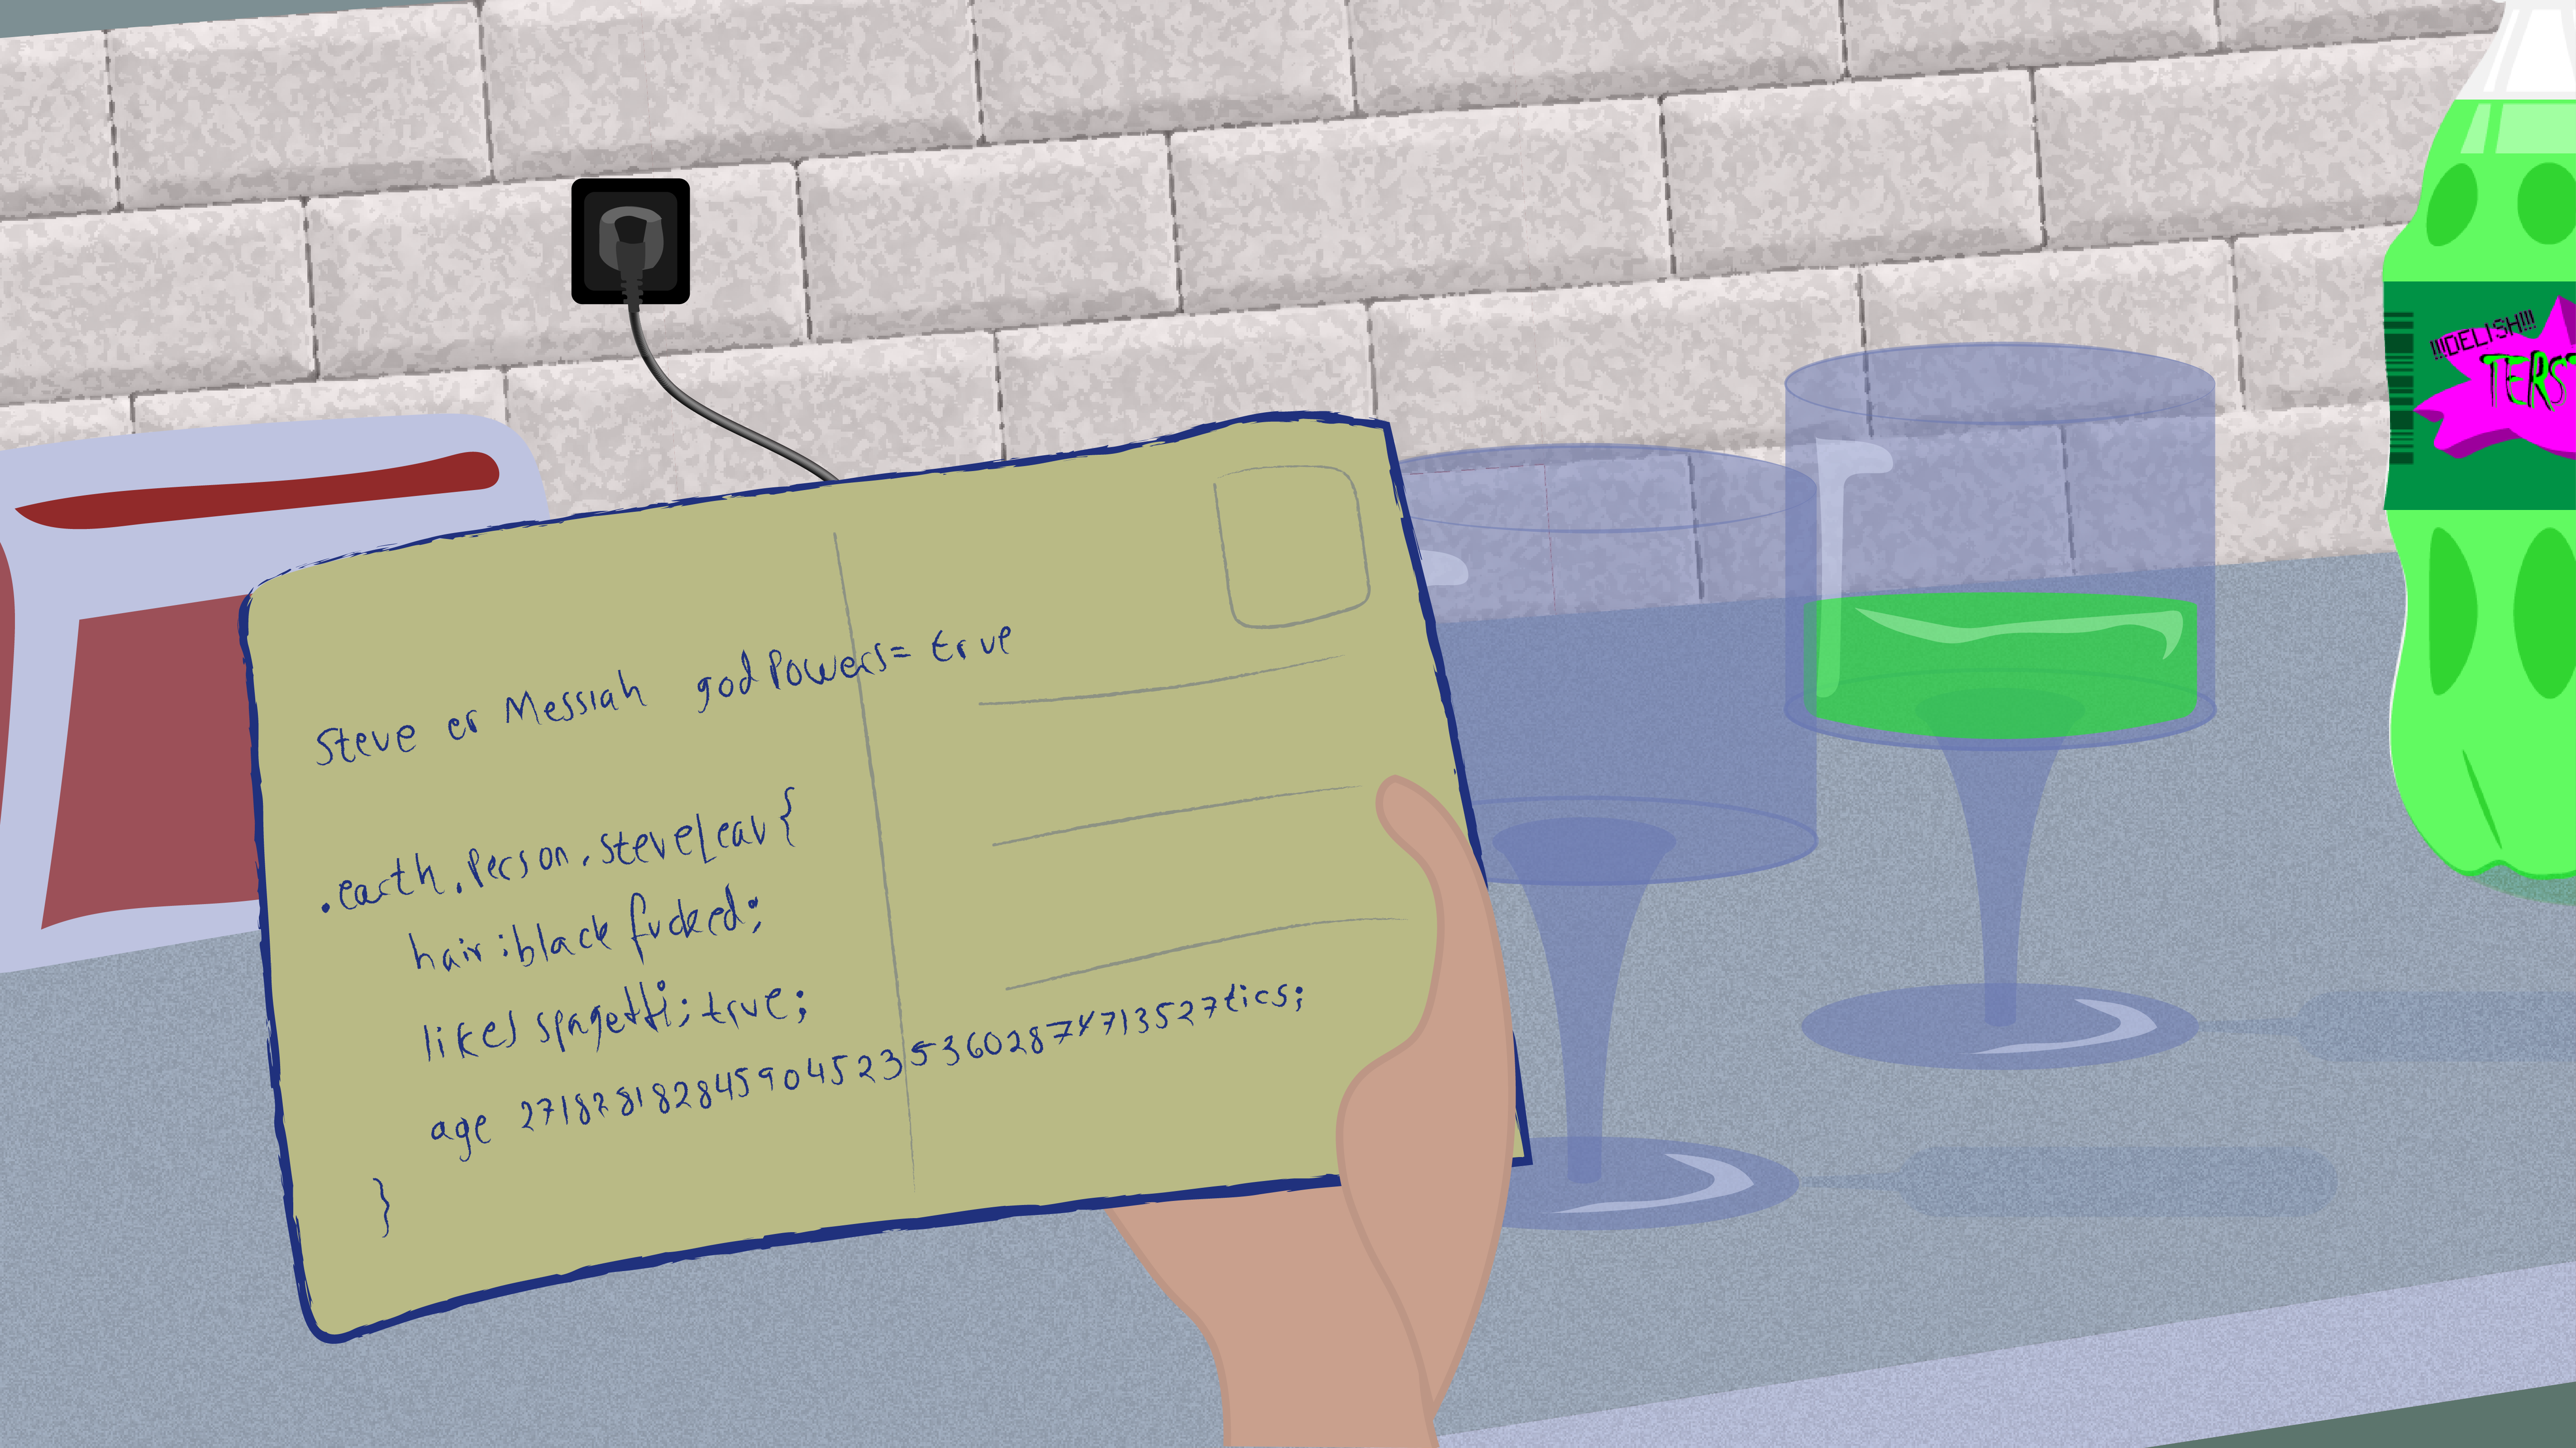 Steve er Messiah godPowers= true
.earth.Person.steveLeav{
hair:black fucked;
likes spagetti;true;
age 2718281828459045235360287471352​7tics;
}
!!!DELISH!!!
TERS